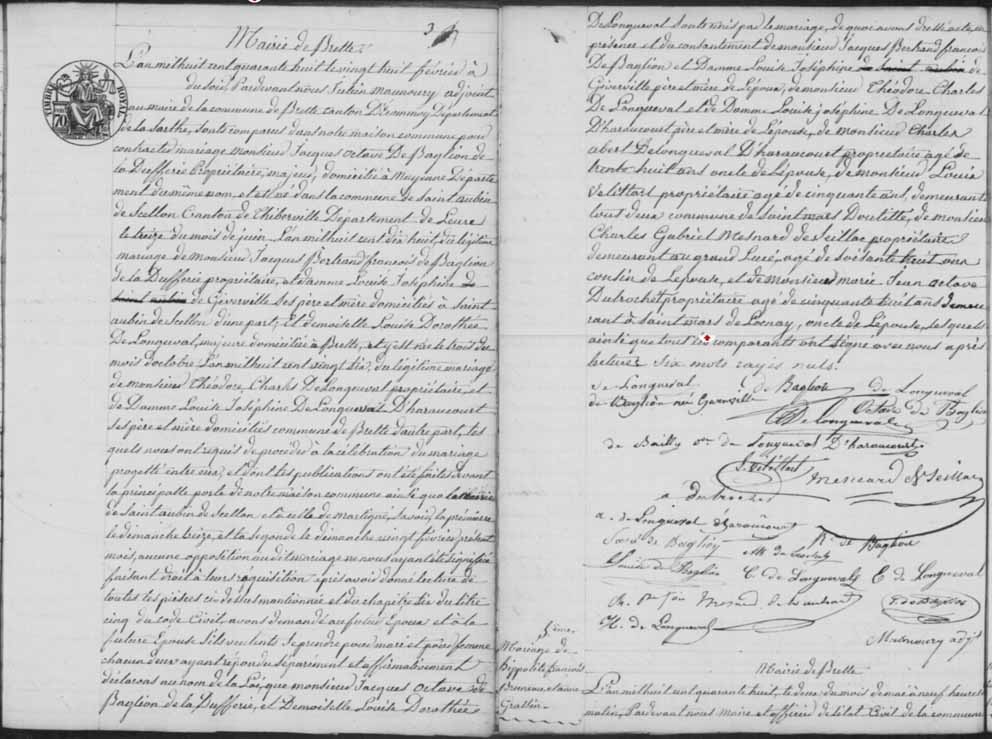 Mairie de Brette
L'an mil huit cent quarante huit le vingt huit février à
du soir, Pardevant nous Julien Maunoury adjoint
au maire de la commune de Brette canton D'Ecommoy Departement
de la Sarthe, sont comparus dans notre maison commune pour
contracter mariage monsieur Jacques Octave De Baglion de
la Dufferie Propriétaire, majeur, domicilié à Mayenne Départe
ment du même nom, et est né dans la commune de Saint aubin
de Scellon Canton de Thiberville Departement de Leure
le treize du mois de juin L'an mil huit cent dix huit, du légitime
mariage de Monsieur Jacques Bertrand françois de Baglion
de la Dufferie propriétaire, et damme Louise Joséphine de
Saint aubin de Giverville Ses père et mère domiciliés à Saint
aubin de Scellon d'une part, Et demoiselle Louise Dorothée
De Longueval, majeure domiciliée à Brette, et y est née le trois du
mois doctobre L'an mil huit cent vingt six, du légitime mariage
de monsieur Théodore Charles De Longueval propriétaire, et
de Damme Louise Joséphine De Longueval D'haraucourt
Ses père et mère domiciliés commune de Brette d'autre part, les
quels nous ont requis de procéder à la célébration du mariage
progetté entre eux, et dont les publications ont été faites devant
la principalle porte de notre maison commune ainsi que la mairie
de Saint aubin de Scellon et à celle de martigné, Savoir, la première
le dimanche treize, et la Segonde le dimanche vingt février présent
mois, aucune opposition audit mariage ne nous ayant été signifiée
faisant droit à leurs réquisition, après avoir donné lecture de
toutes les pièces ci dessus mantionnée et du chapitre Six du titre
cinq du code Civil, avons demandé au futur Epoux et à la
future Epouse S'ils veulent Se prendre pour mari et pour femme
chacun d'eux ayant répondu Séparément et affirmativement
déclarons au nom de la Loi, que monsieur Jacques Octave de
Baglion de la Dufferie, et Demoiselle Louise Dorothée
De Longueval Sont unis par le mariage, de quoi avons dressé acte, en
présence et du consantement de monsieur Jacques Bertrand françois
De Baglion et Damme Louise Joséphine de Saint aubin de
Giverville père et mère de Lépoux, de monsieur Théodore Charles
De Longueval et de Damme Louise joséphine De Longueval
D'haraucourt père et mère de Lépouse, de monsieur Charles
abert Delongueval D'haraucourt propriétaire agé de
trente huit ans oncle de Lépouse, de monsieur Louis
propriétaire agé de cinquante ans, demeurant
tout deux commune de Saint mars Doutillé, de monsieur
Charles Gabriel Mesnard de Seillac propriétaire
demeurant au grand Lucé, agé de Soixante huit ans
cousin de Lépouse, et de monsieur marie Jean octave
Dutrochet propriétaire agé de cinquante huit ans demeu
rant à Saint mars de Locnay, oncle de Lépouse, Les quels
ainsi que tous les comparants ont Signé avec nous après
lecture. Six mots rayés nuls.
de Longueval J. de Baglion de Longueval
de Baglion née Giverville Octave de Baglion
De Longueval
de Bailly de Longueval D'haraucourt
Mesnard De Seillac
a Dutrochet
a. de Longueval d'haraucourt R. de Baglion
de Baglion
Louise de Baglion C. De Longueval E de Longueval
Mesnard
H. de Longueval
Maunoury adjt
Mariage de
hippolite françois
Mairie de Brette
L'an mil huit cent quarante huit, le du mois de mai à neuf heures du
matin, Pardevant nous maire et officier de l'état Civil de la commune